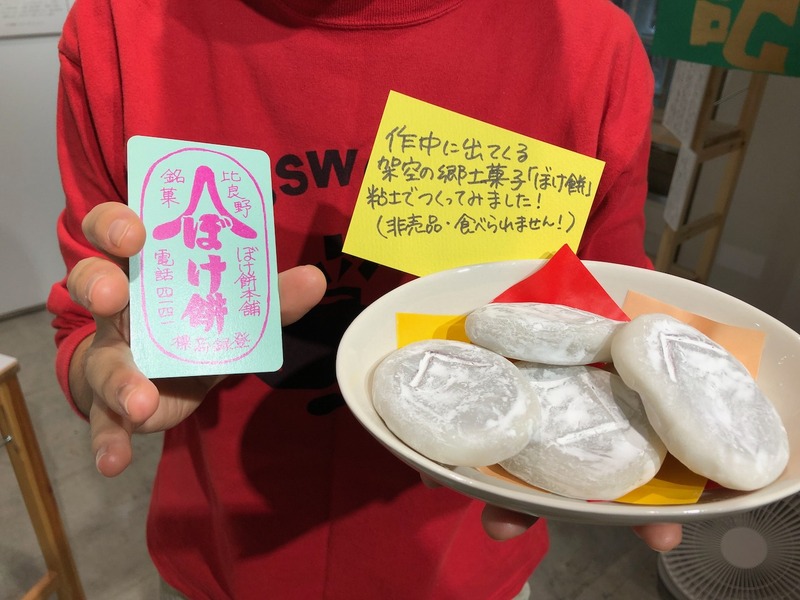 比良野
銘菓
ぼけ餅
ぼけ餅本舗
電話四一四一
登録商標
作中に出てくる
架空の郷土菓子「ぼけ餅」
粘土でつくってみました!
(非売品・食べられません!)
SW